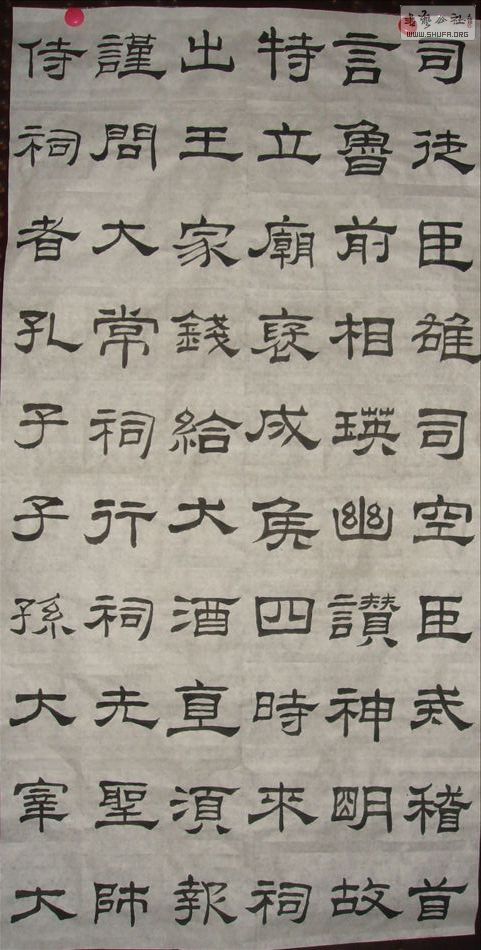 司徒臣雄司空臣戒稽首
言魯前相瑛幽讚神明故
特立廟褒成侯四時來祠
出王家錢給犬酒直須報
謹問大常祠行祠先聖師
侍祠者孔子子孫大宰大
WWW.SHUFA.ORG